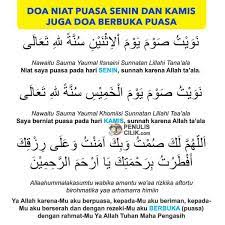 DOA NIAT PUASA SENIN DAN KAMIS
JUGA DOA BERBUKA PUASA
نَوَيْتُ صَوْمَ يَوْمَ اْلاِثْنَيْنِ سُنَّةً ِللهِ تَعَالَى
Nawaitu Sauma Yaumal Itsnaini Sunnatan Lillahi Tana'ala
Niat saya puasa pada hari SENIN, sunnah karena Allah ta'ala.
نَوَيْتُ صَوْمَ يَوْمَ الْخَمِيْسِ سُنَّةً ِللهِ تَعَالَى
Nawaitu Sauma Yaumal Khomiisi Sunnatan Lillahi Tsa'ala
Saya berniat puasa pada hari KAMIS, sunnah karena Allah ta'ala.
PENULIS
CILIK.com
اَللّهُمَّ لَكَ صُمْتُ وَبِكَ آمَنْتُ وَعَلَى رِزْقِكَ
أَفْطَرْتُ بِرَحْمَتِكَ يَا اَرْحَمَ الرَّحِمِيْنَ
Allaahummalakasumtu wabika amantu wa'aa rizkika aftortu
birohmatika yaa arhamarra himiin
Ya Allah karena-Mu aku berpuasa, kepada-Mu aku beriman, kepada-
Mu aku berserah dan dengan rezeki-Mu aku BERBUKA (puasa)
dengan rahmat-Mu Ya Allah Tuhan Maha Pengasih